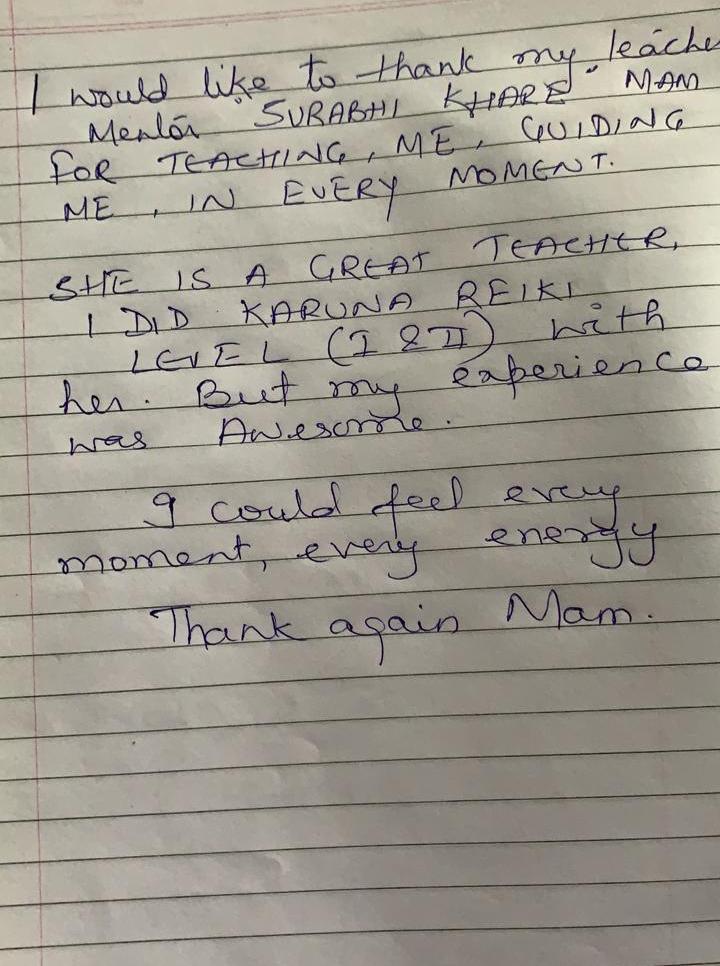 I would like to thank my teache
Mentor "SURABHI KHARE" MAM
FOR TEACHING, ME, GUIDING
ME, IN EVERY MOMENT.
SHE IS A GREAT TEACHER,
I DID KARUNA REIKI
LEVEL (I & II) with
her. But my experience
was Awesome.
I could feel every
moment, every energy
Thank again Mam.